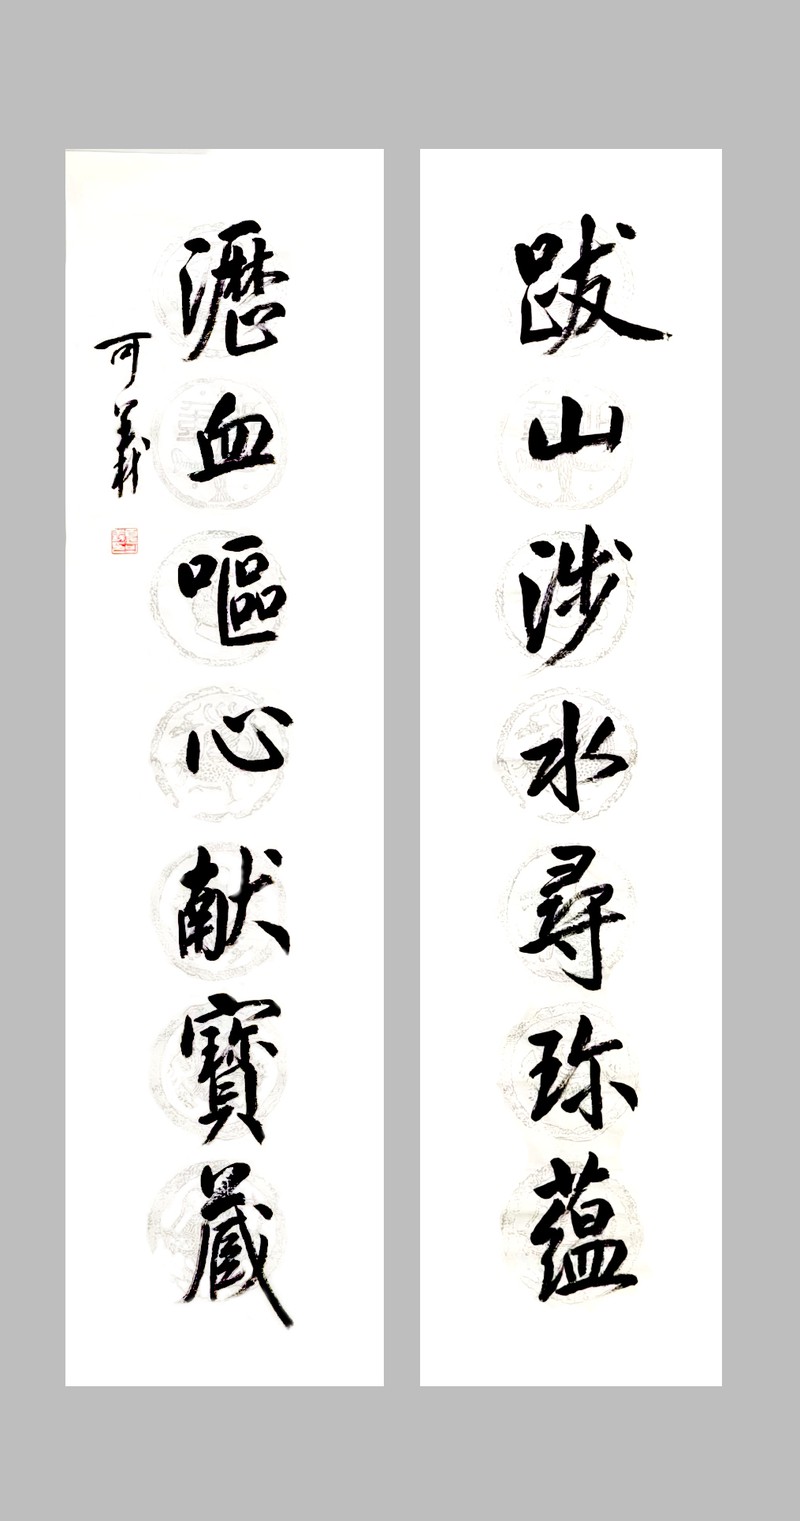 跋山涉水尋珎蕴
瀝血嘔心献寳蔵
可義